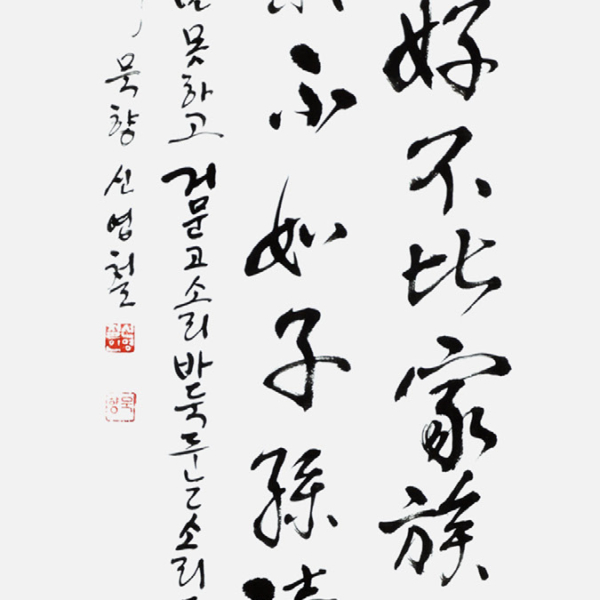 好不比家族
不如子孫
못하고 거문고소리 바둑두는소리
묵향 신영철